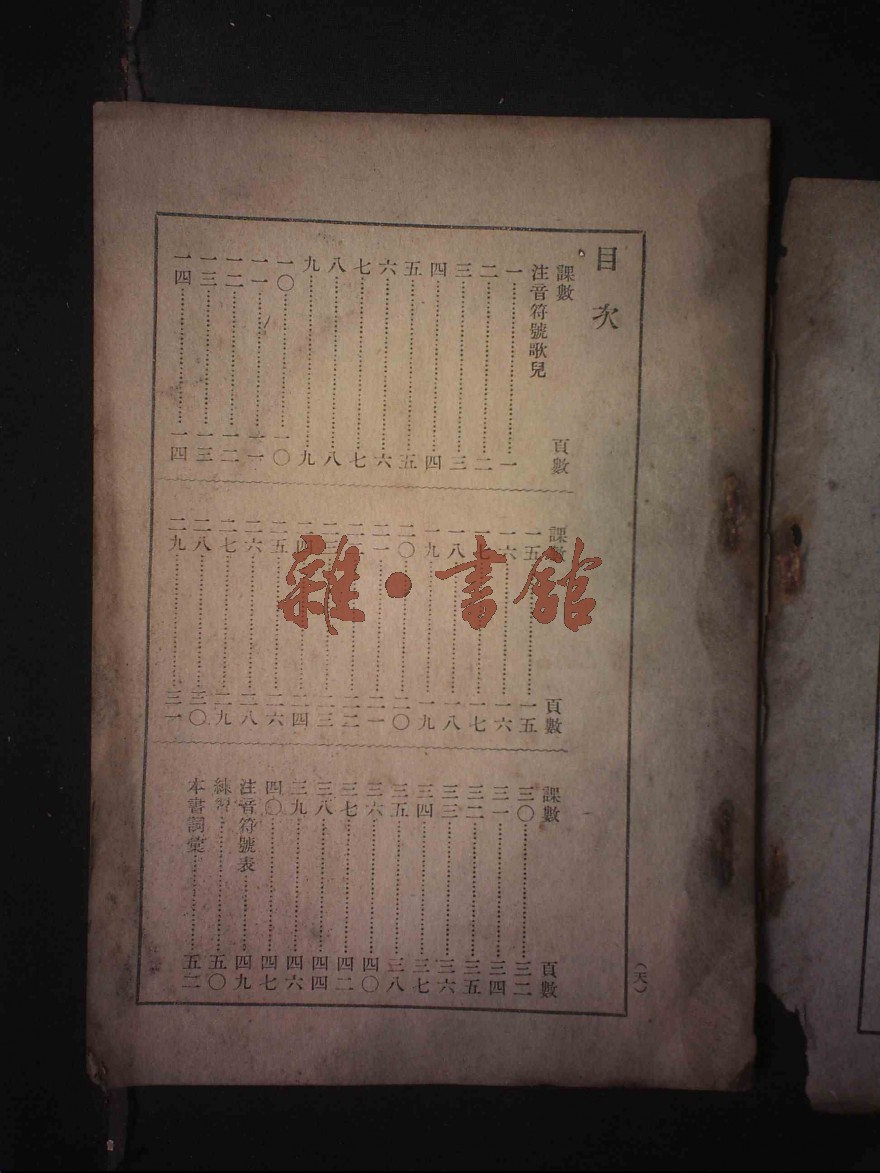 目次
課數 頁數
注音符號歌兒
一……一
二……二
三……三
四……四
五……五
六……六
七……七
八……八
九……九
一〇……一〇
一一……一一
一二……一二
一三……一三
一四……一四
課數 頁數
一五……一五
一六……一六
一七……一七
一八……一八
一九……一九
二〇……二〇
二一……二一
二二……二二
二三……二三
二四……二四
二五……二六
二六……二八
二七……二九
二八……三〇
二九……三一
課數 頁數
三〇……三二
三一……三四
三二……三五
三三……三六
三四……三七
三五……三八
三六……四〇
三七……四二
三八……四四
三九……四六
四〇……四七
注音符號表……四九
練習……五〇
本書詞彙……五二
(天)
雜·書館